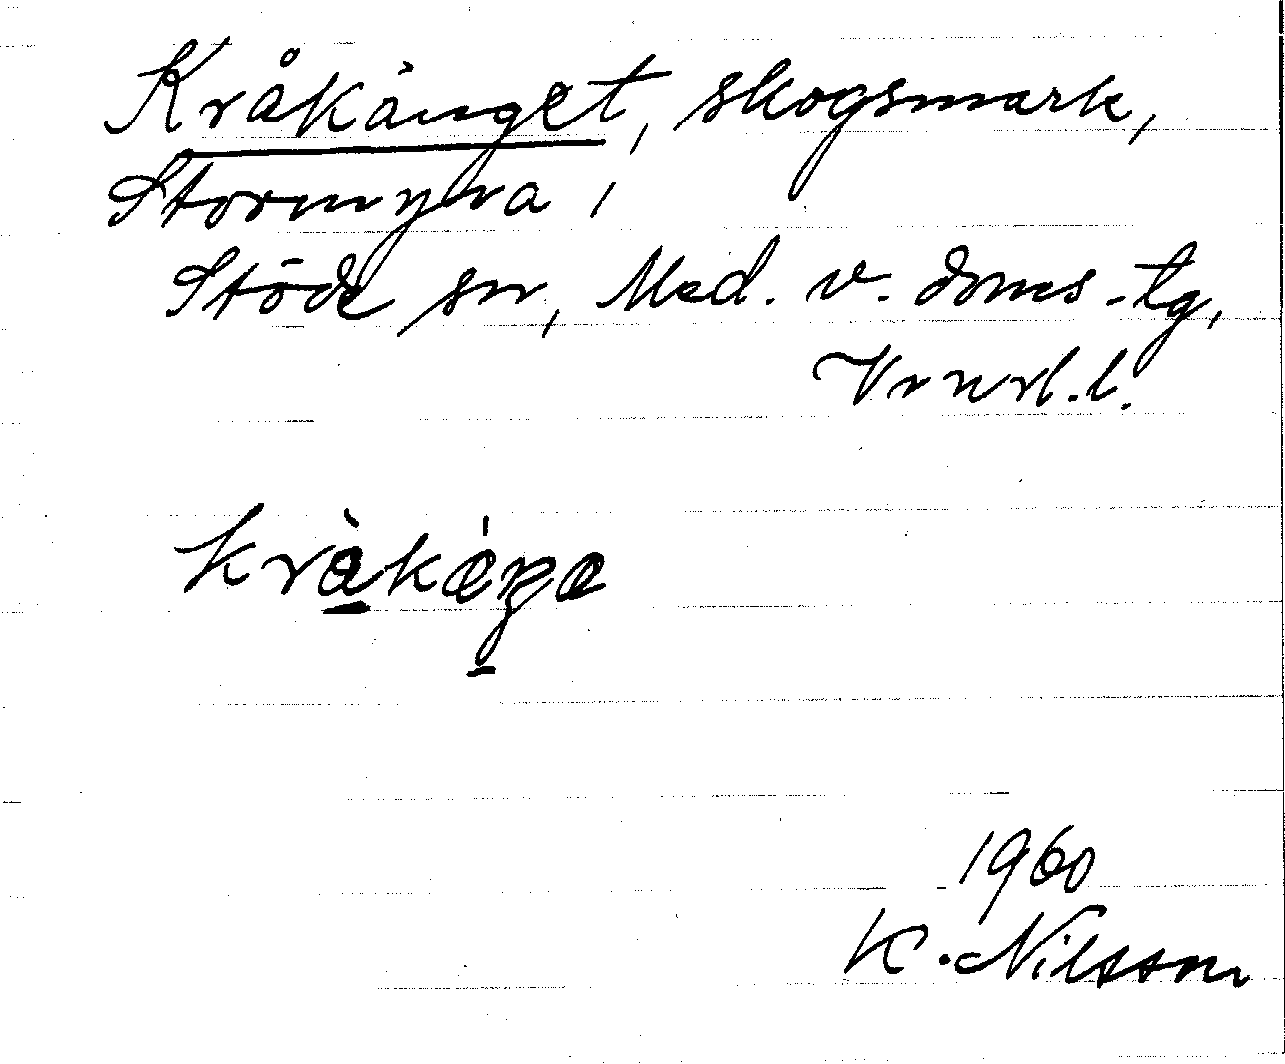 Kråkänget, skogsmark,
Stormyra,
Stöde sn, Med. v. doms-tg,
Vrnrl.l.
kràkéŋe
1960
K. Nilsson